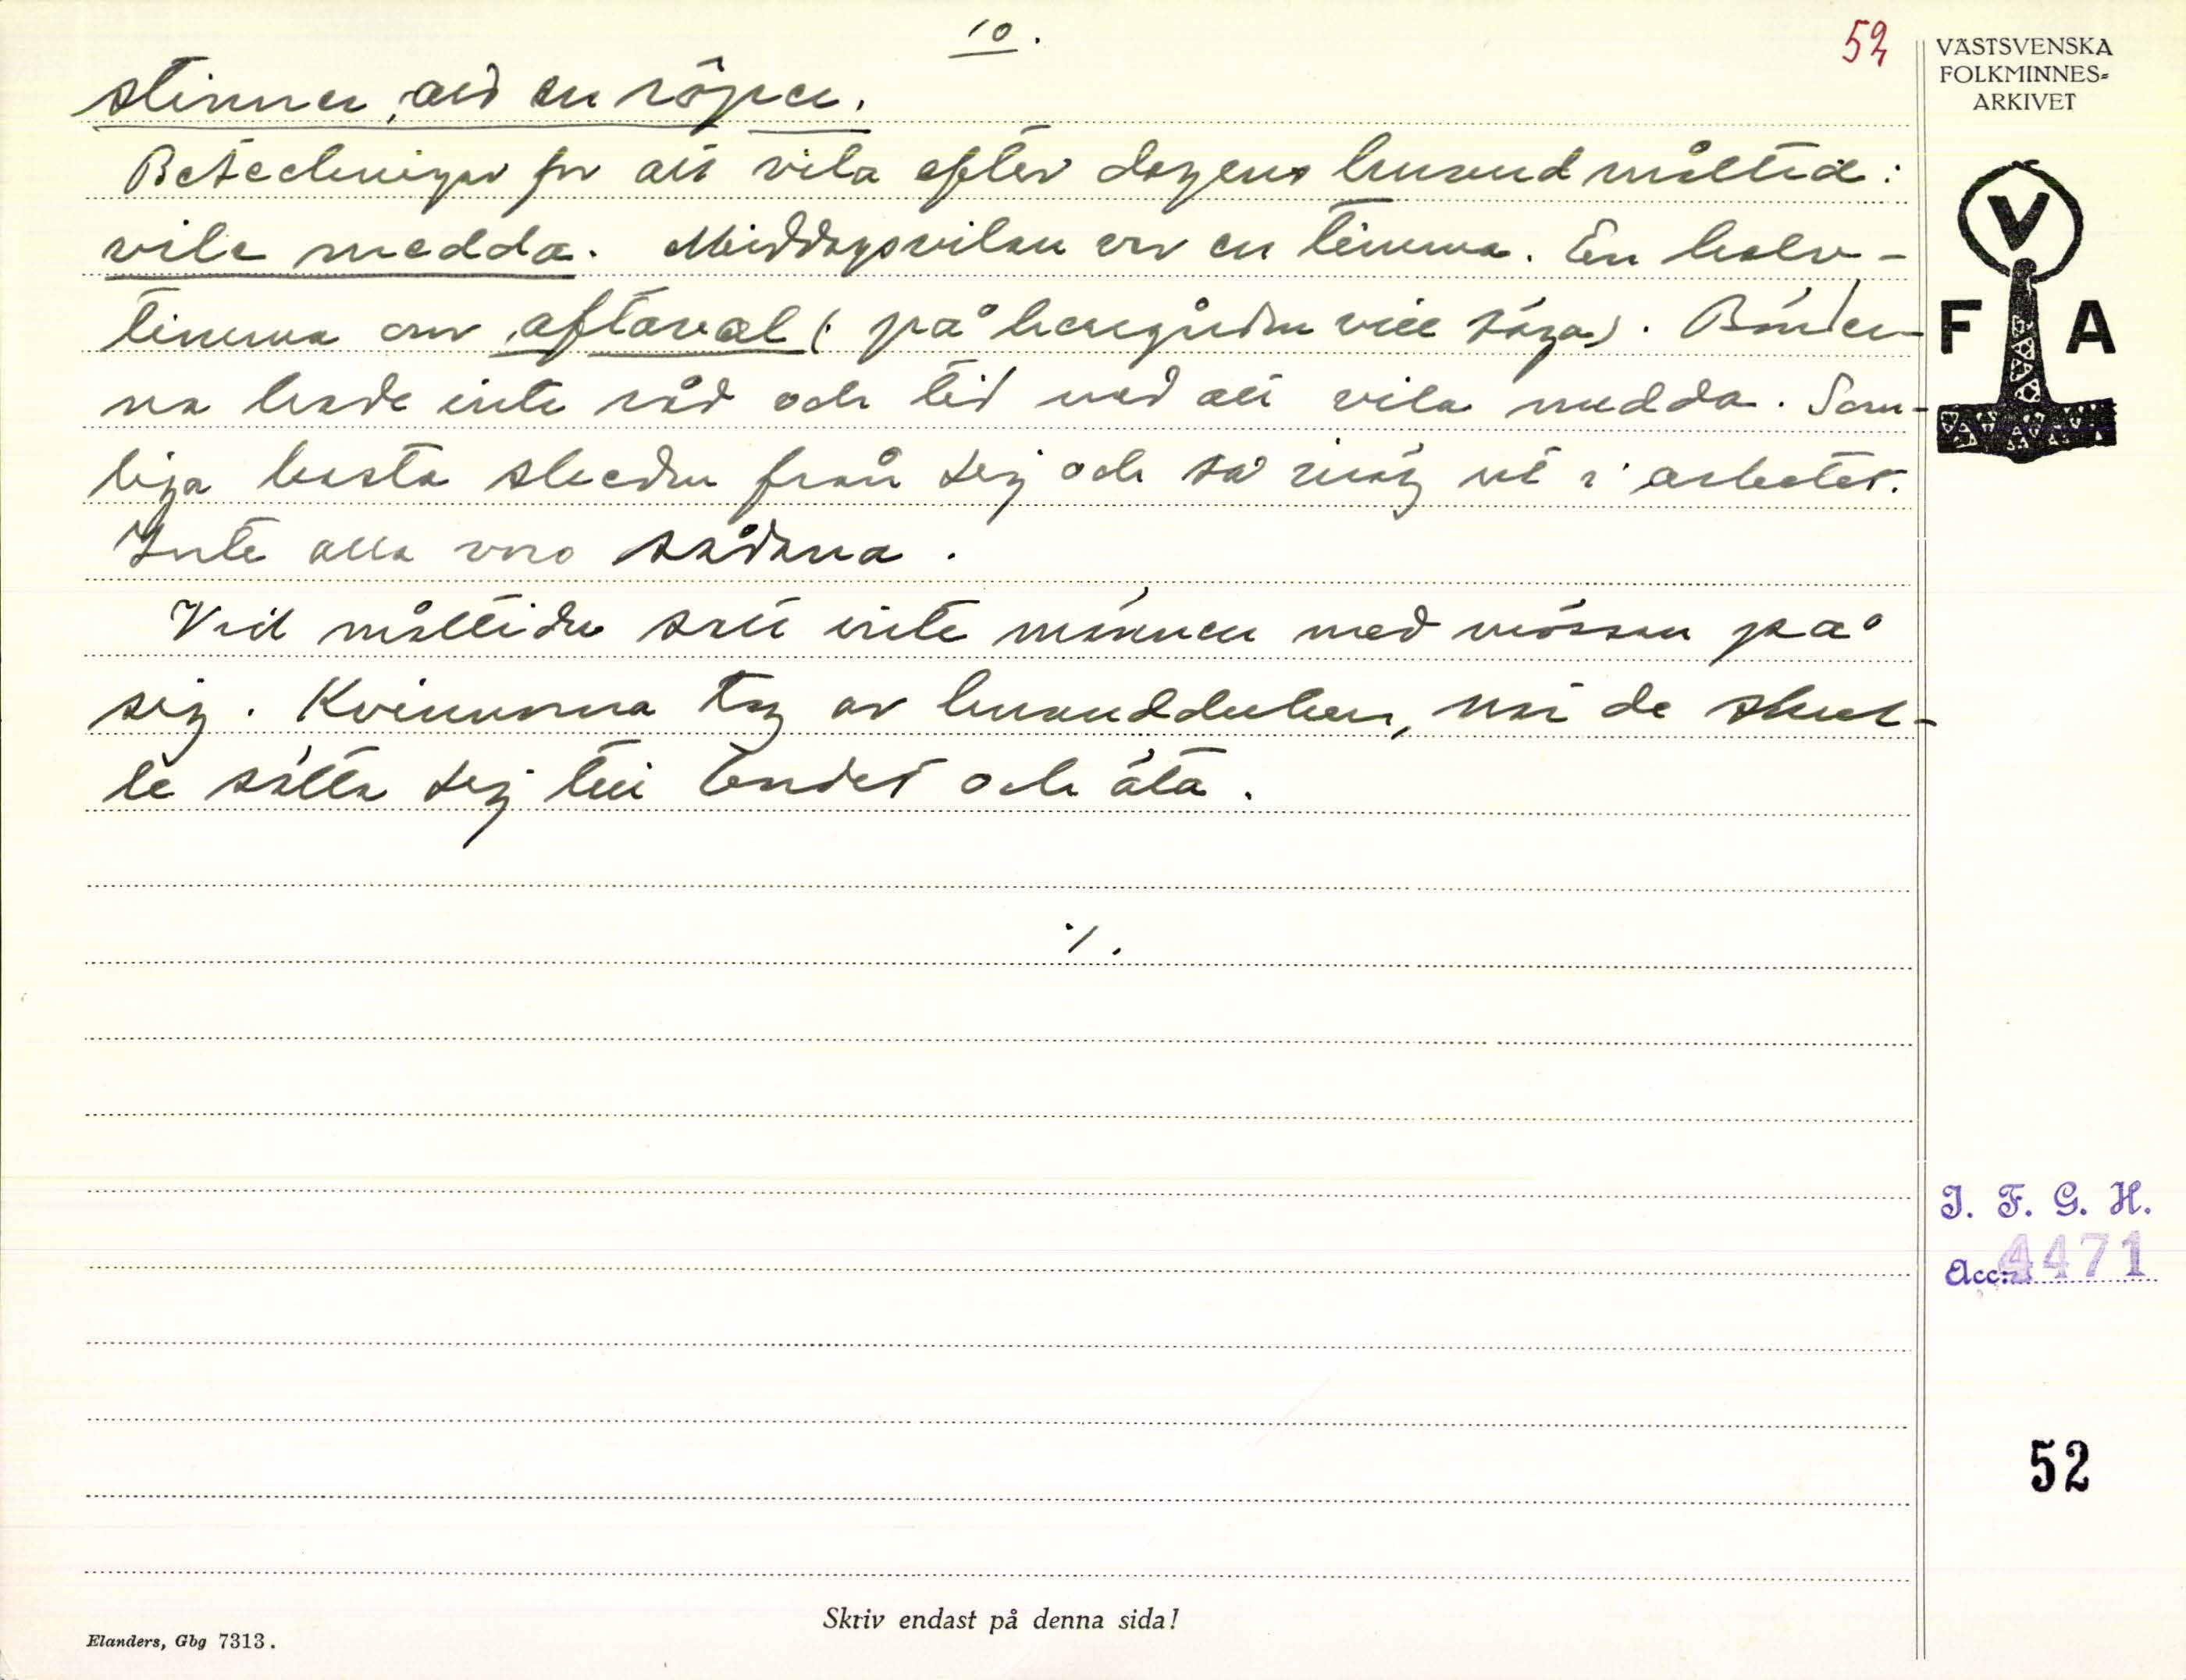 10.
52
stinner, aid en röper.
Beteckningar för att vila efter dagens huvudmåltid:
vila medda. Middagsvilan var en timma. En halv-
timma om aftaval (: på herrgården vill säga). Bönder-
na hade inte råd och tid med att vila medda. Som-
liga kasta skeden från sej och så iväg ut i arbetet.
Inte alla voro sådana.
Vid måltiden satt inte männen med mössan på
sig. Kvinnorna tog av huvudduken, när de skul-
le sätta sej till bordet och äta.
./.
VÄSTSVENSKA
FOLKMINNES-
ARKIVET
V
F A
I. F. G. H.
Acc: 4471
52
Skriv endast på denna sida!
Elanders, Gbg 7313.